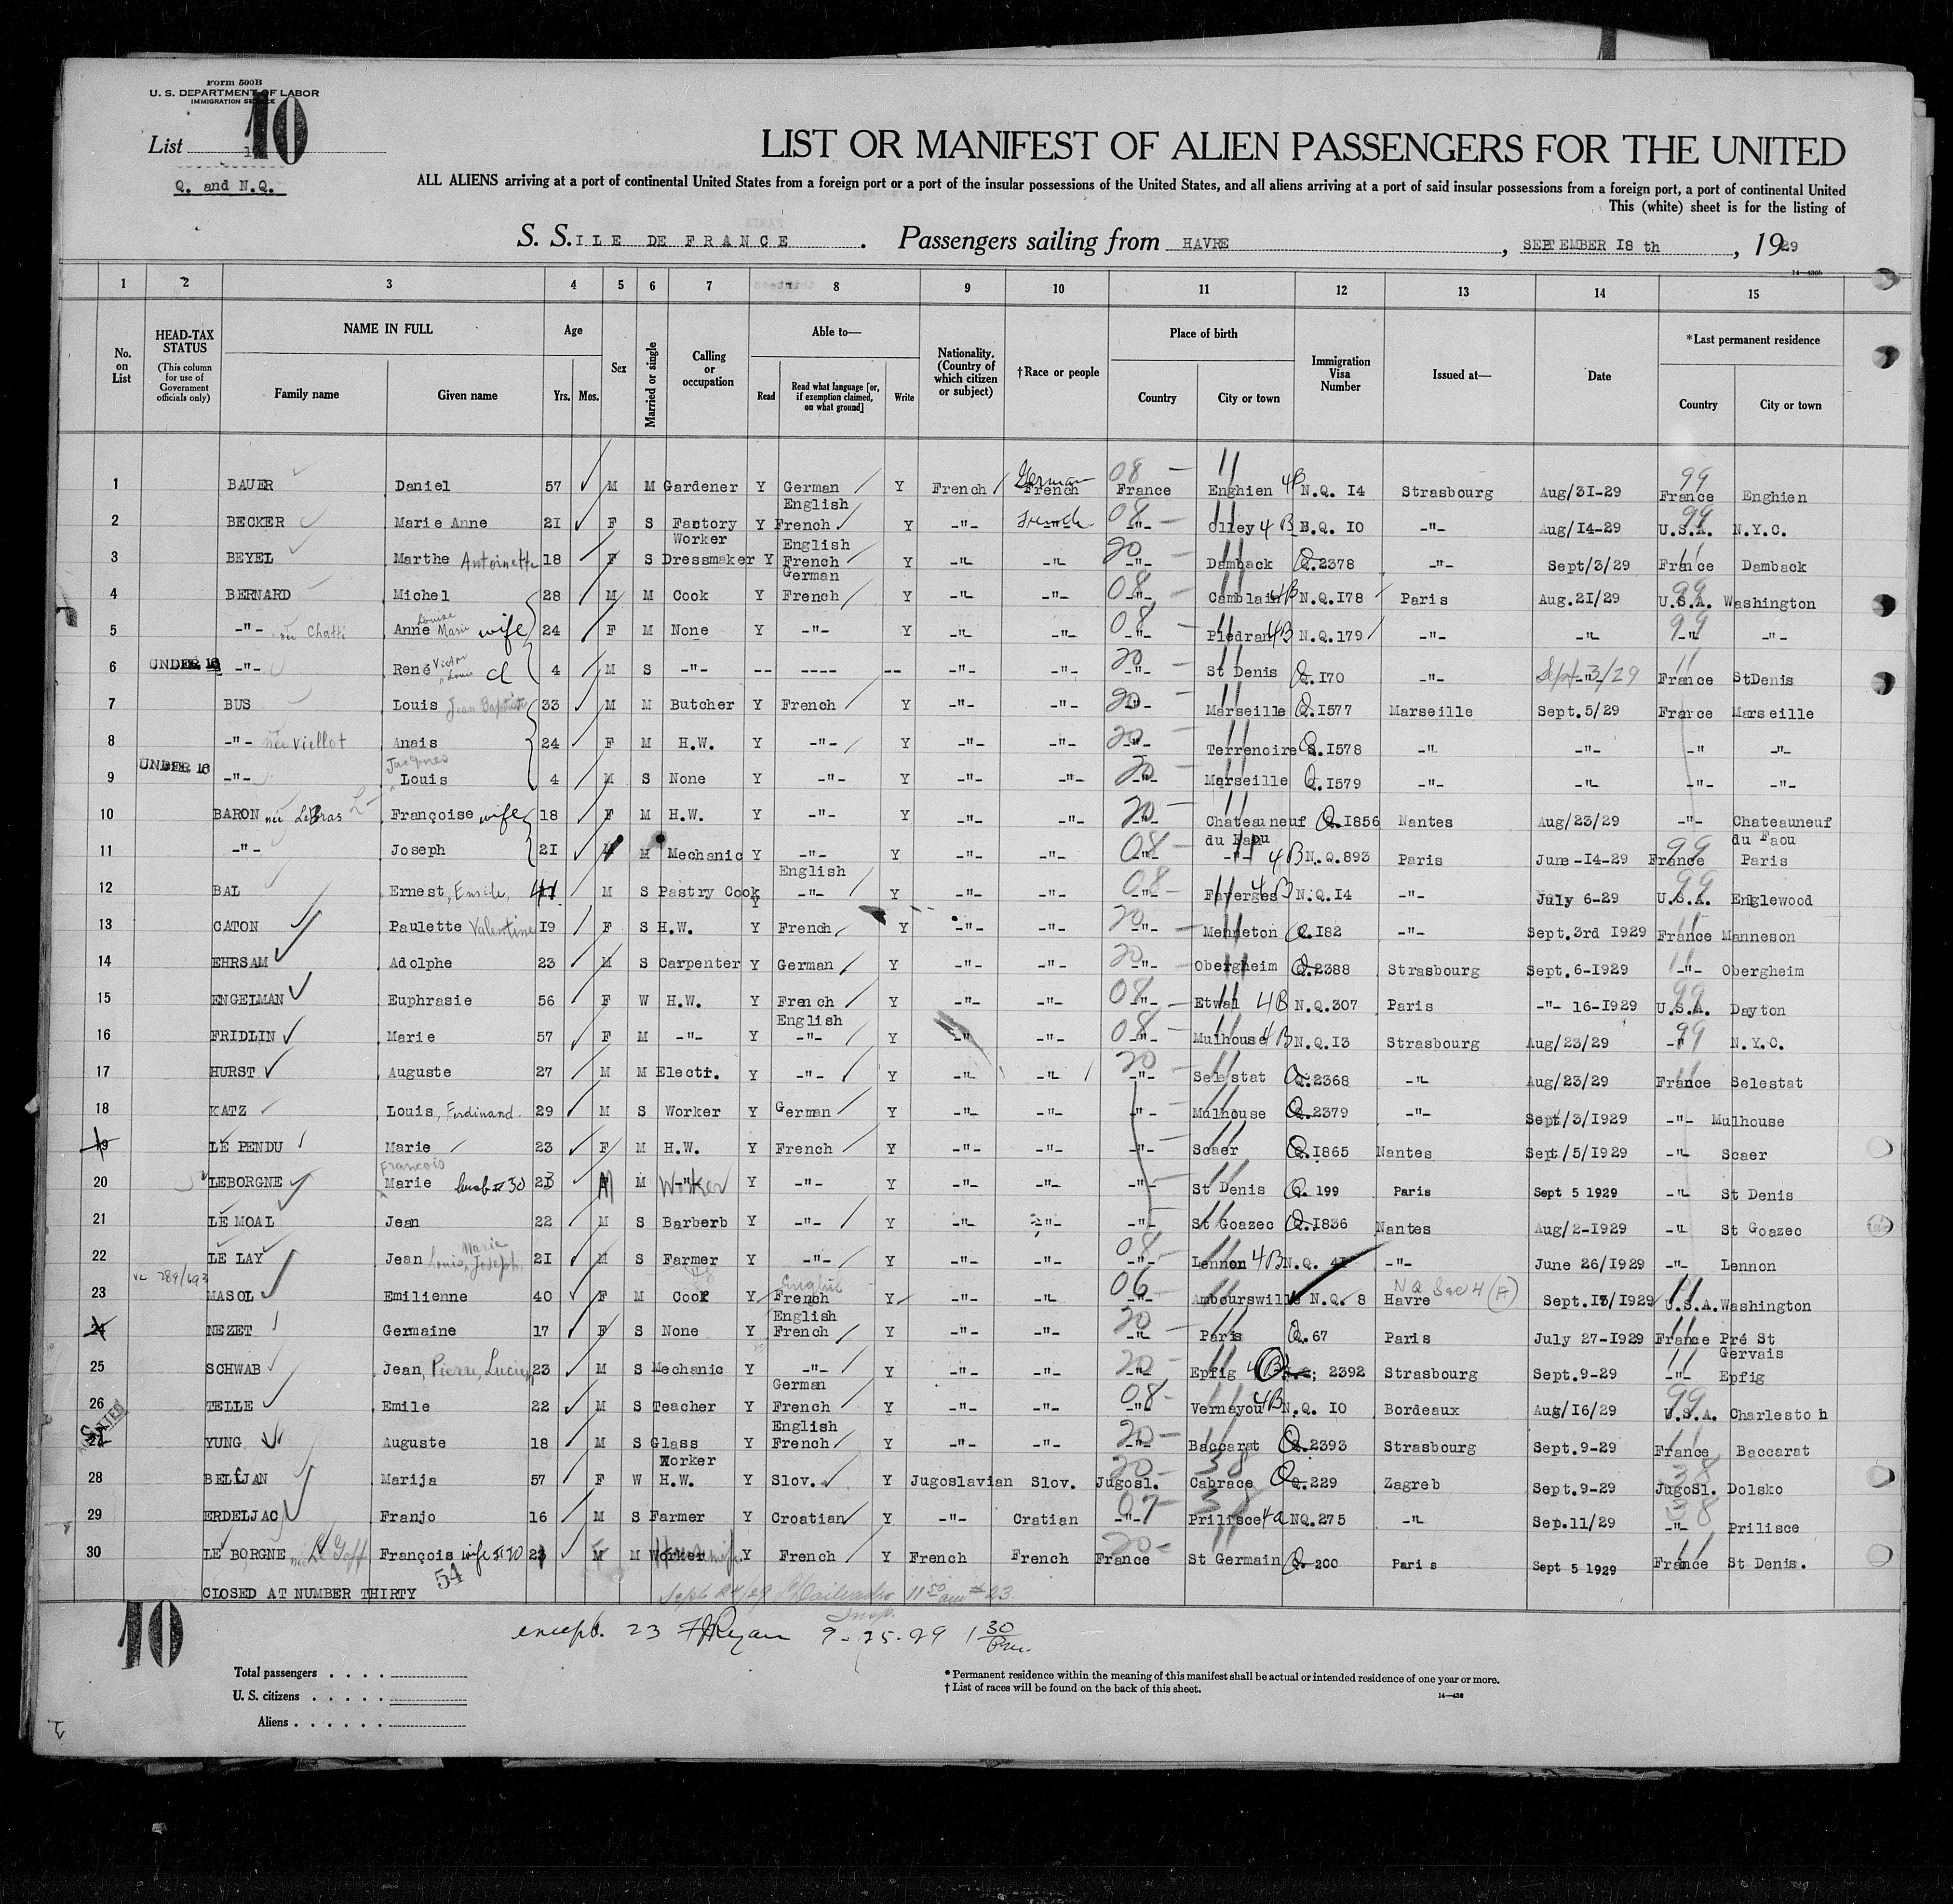 Form 500B
U. S. DEPARTMENT OF LABOR
IMMIGRATION SERVICE
List 10
Q. and N.Q.
LIST OR MANIFEST OF ALIEN PASSENGERS FOR THE UNITED
ALL ALIENS arriving at a port of continental United States from a foreign port or a port of the insular possessions of the United States, and all aliens arriving at a port of said insular possessions from a foreign port, a port of continental United
This (white) sheet is for the listing of
S. S. ILE DE FRANCE . Passengers sailing from HAVRE , SEPTEMBER I8 th , 1929
14—430b
1 2 3 4 5 6 7 8 9 10 11 12 13 14 15
No. on List
HEAD-TAX STATUS
(This column for use of Government officials only)
NAME IN FULL
Family name Given name
Age
Yrs. Mos.
Sex
Married or single
Calling or occupation
Able to—
Read Read what language [or, if exemption claimed, on what ground] Write
Nationality. (Country of which citizen or subject)
†Race or people
Place of birth
Country City or town
Immigration Visa Number
Issued at—
Date
*Last permanent residence
Country City or town
1 BAUER Daniel 57 M M Gardener Y German English Y French French German 08 France Enghien 4B N.Q. I4 Strasbourg Aug/3I-29 99 France Enghien
2 BECKER Marie Anne 2I F S Factory Worker Y French English Y -"- French 08 -"- Olley 4B N.Q. IO -"- Aug/I4-29 99 U.S.A. N.Y.C.
3 BEYEL Marthe Antoinette I8 F S Dressmaker Y French German Y -"- -"- 20 -"- Damback Q.2378 -"- Sept/3/29 11 France Damback
4 BERNARD Michel 28 M M Cook Y French Y -"- -"- 08 -"- Camblain 4B N.Q.I78 Paris Aug.2I/29 99 U.S.A. Washington
5 -"- née Chatti Anne Louise Marie wife 24 F M None Y -"- Y -"- -"- 08 -"- Piedran 4B N.Q.I79 -"- -"- 99 -"- -"-
6 UNDER 16 -"- René Victor Louis cl 4 M S -"- -- ---- -- -"- -"- 20 -"- St Denis Q.I70 -"- Sept 3/29 11 France StDenis
7 BUS Louis Jean Baptiste 33 M M Butcher Y French Y -"- -"- 20 -"- Marseille Q.I577 Marseille Sept.5/29 France Marseille
8 -"- née Viellot Anais 24 F M H.W. Y -"- Y -"- -"- 20 -"- Terrenoire Q.I578 -"- -"- -"- -"-
9 UNDER 16 -"- Jacques Louis 4 M S None Y -"- Y -"- -"- 20 -"- Marseille Q.I579 -"- -"- -"- -"-
10 BARON née LeBras Françoise wife I8 F M H.W. Y -"- Y -"- -"- 20 -"- Chateauneuf du Faou Q.I856 Nantes Aug/23/29 -"- Chateauneuf du Faou
11 -"- Joseph 2I M M Mechanic Y -"- Y -"- -"- 08 -"- -"- 4B N.Q.893 Paris June-I4-29 99 France Paris
12 BAL Ernest, Emile, 41 M S Pastry Cook Y English -"- -"- -"- 08 -"- Faverges 4B N.Q.I4 -"- July 6-29 99 U.S.A. Englewood
13 CATON Paulette Valentine I9 F S H.W. Y French Y -"- -"- 20 -"- Menneton Q.I82 -"- Sept.3rd I929 France Manneson
14 EHRSAM Adolphe 23 M S Carpenter Y German Y -"- -"- 20 -"- Obergheim Q.2388 Strasbourg Sept.6-I929 11 -"- Obergheim
15 ENGELMAN Euphrasie 56 F W H.W. Y French Y -"- -"- 08 -"- Etwal 4B N.Q.307 Paris -"- I6-I929 99 U.S.A. Dayton
16 FRIDLIN Marie 57 F M -"- Y English -"- Y -"- -"- 08 -"- Mulhouse 4B N.Q.I3 Strasbourg Aug/23/29 99 -"- N.Y.C.
17 HURST Auguste 27 M M Electr. Y -"- Y -"- -"- 20 -"- Selestat Q.2368 -"- Aug/23/29 11 France Selestat
18 KATZ Louis, Ferdinand. 29 M S Worker Y German Y -"- -"- -"- Mulhouse Q.2379 -"- Sept/3/I929 -"- Mulhouse
19 LE PENDU Marie 23 F M H.W. Y French Y -"- -"- -"- Scaer Q.I865 Nantes Sept/5/I929 -"- Scaer
20 LEBORGNE Francois Marie husb # 30 23 M M Worker Y -"- Y -"- -"- -"- St Denis Q. 199 Paris Sept 5 1929 -"- St Denis
21 LE MOAL Jean 22 M S Barberb Y -"- Y -"- -"- -"- St Goazec Q.I836 Nantes Aug/2-I929 -"- St Goazec
22 LE LAY Jean Louis Marie Joseph 2I M S Farmer Y -"- Y -"- -"- 08 -"- Lennon 4B N.Q. 4I -"- June 26/I929 -"- Lennon
23 MASOL Emilienne 40 F M Cook Y English French Y -"- -"- 06 -"- Ambourswille N.Q. 8 Havre NQ Sec 4 (F) Sept.I3/I929 11 U.S.A. Washington
24 NEZET Germaine I7 F S None Y English French Y -"- -"- 20 -"- Paris Q.67 Paris July 27-I929 France Pré St Gervais
25 SCHWAB Jean, Pierre, Lucien 23 M S Mechanic Y -"- Y -"- -"- 20 -"- Epfig Q 2392 Strasbourg Sept.9-29 11 -"- Epfig
26 TELLE Emile 22 M S Teacher Y German French Y -"- -"- 08 -"- Vernayou 4B N.Q. IO Bordeaux Aug/I6/29 99 U.S.A. Charlesto h
27 YUNG Auguste I8 M S Glass Worker Y English French Y -"- -"- 20 -"- Baccarat Q.2393 Strasbourg Sept.9-29 11 France Baccarat
28 BELÎJAN Marija 57 F W H.W. Y Slov. Y Jugoslavian Slov. 20 Jugosl. 38 Cabrace Q.229 Zagreb Sept.9-29 38 JugoSl. Dolsko
29 ERDELJAC Franjo I6 M S Farmer Y Croatian Y -"- Cratian 07 -"- 38 Prilisce 4a NQ.275 -"- Sep.II/29 38 -"- Prilisce
30 LE BORGNE née Le Goff François wife # 20 M Worker Y French Y French French 20 France 11 St Germain Q. 200 Paris Sept 5 1929 France St Denis.
54
CLOSED AT NUMBER THIRTY Sept 24/29 11 50 am # 23
Insp.
10
except. 23 FJRyan 9-25-29 1 30 Pm.
Total passengers . . . .
U. S. citizens . . . . .
Aliens . . . . . .
* Permanent residence within the meaning of this manifest shall be actual or intended residence of one year or more.
† List of races will be found on the back of this sheet.
14—430